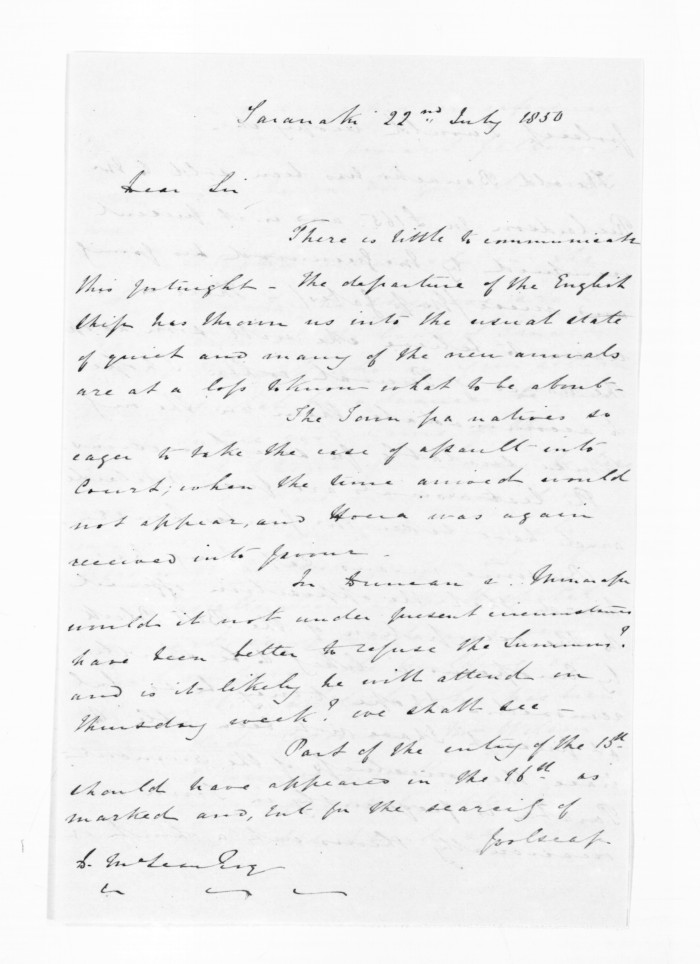 Taranaki 22nd July 1850
Dear Sir
There is little to communicate
this fortnight - the departure of the English
ship has thrown us into the usual state
of quiet and many of the new arrivals
are at a loss to know what to be about -
The Town pa natives so
eager to take the case of assault into
Court, when the time arrived would
not appear, and was again
received into favour -
In Duncan v.
would it not under present circumstances
have been better to refuse the Summons?
and is it likely he will attend on
Thursday week? we shall see -
Part of the entry of the 15th
should have appeared in the 16th as
marked and, but for the scarcity of
foolscap
D. McLean Esq